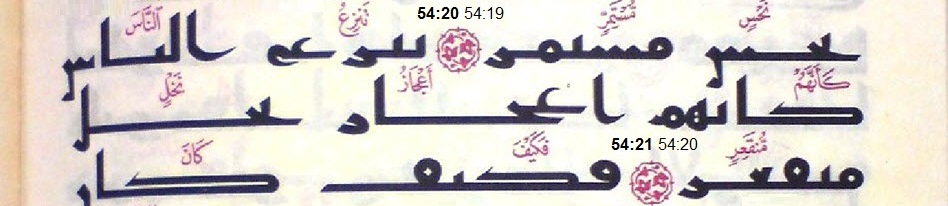 نَحْسٍ مُسْتَمِرٍّ 54:19 54:20 تَنْزِعُ النَّاسَ
نحس مستمر تنزع الناس
كَأَنَّهُمْ أَعْجَازُ نَخْلٍ
كانهم اعجاز نخل
مُنْقَعِرٍ 54:20 54:21 فَكَيْفَ كَانَ
منقعر فكيف كان